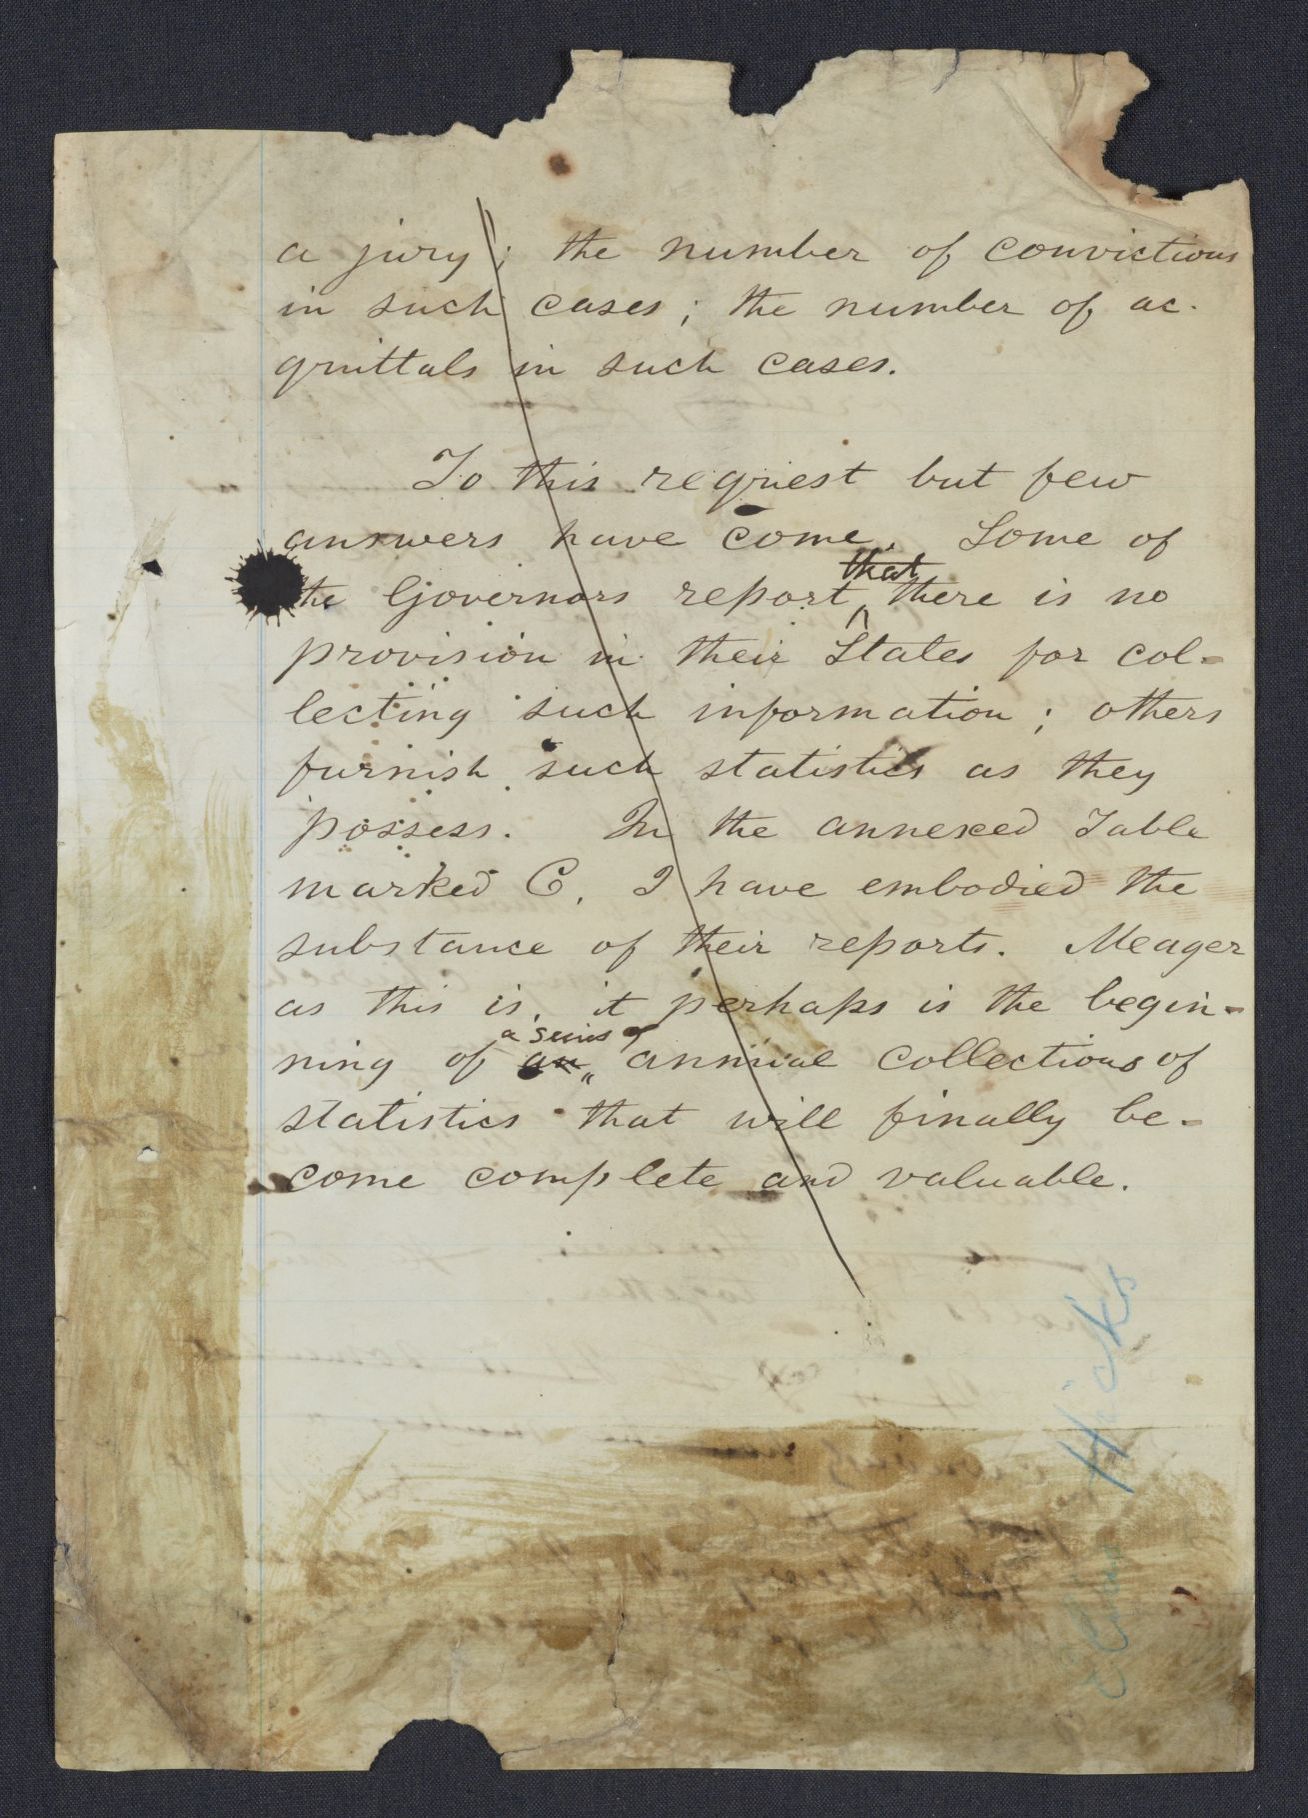 a jury; the number of convictions
in such cases; the number of ac-
quittals in such cases.
To this request but few
answers have come. Some of
that
the Governors report ^ there is no
provision in their States for col-
lecting such information; others
furnish such statistics as they
possess. In the annexed Table
marked C. I have embodied the
substance of their reports. Meager
as this is, it perhaps is the begin-
a series of
ning of an annual collections of
statistics that will finally be-
come complete and valuable.
Hicks